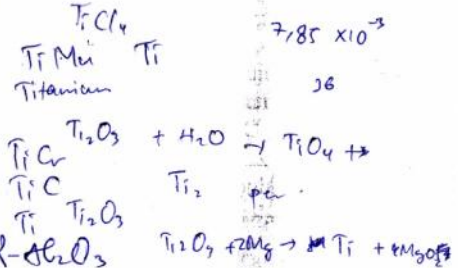 TiCl4
7,85 ×10⁻³
Ti Mn Ti
Titanium
36
Ti2O3 + H2O → TiO4 +
TiCr
TiC Ti2
Ti Ti2O3
Al2O3 Ti2O3 + 2Mg → Ti +